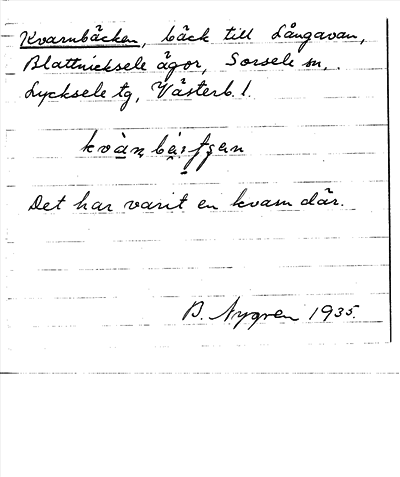 Kvarnbäcken, bäck till Långavan,
Blattnicksele ägor, Sorsele sn,
Lycksele tg, Västerb. l.
Det har varit en kvarn där.
B. Nygren 1935.